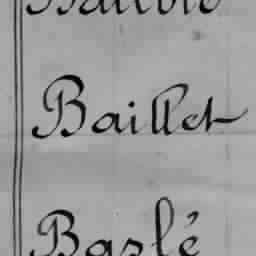 Baillet
Baslé